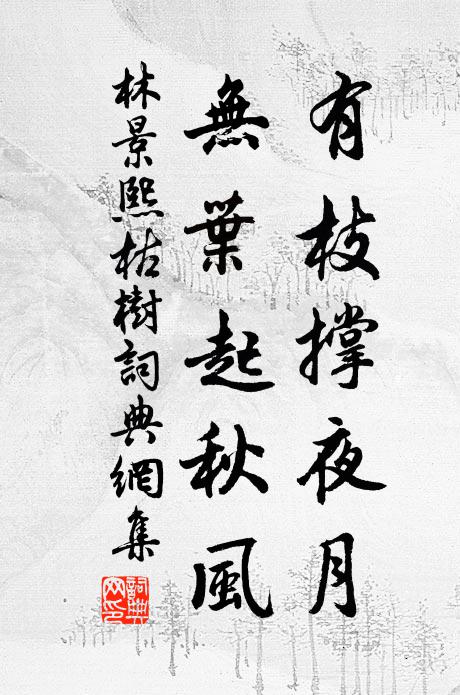 有枝撐夜月
無葉起秋風
林景熙枯樹詞典網集